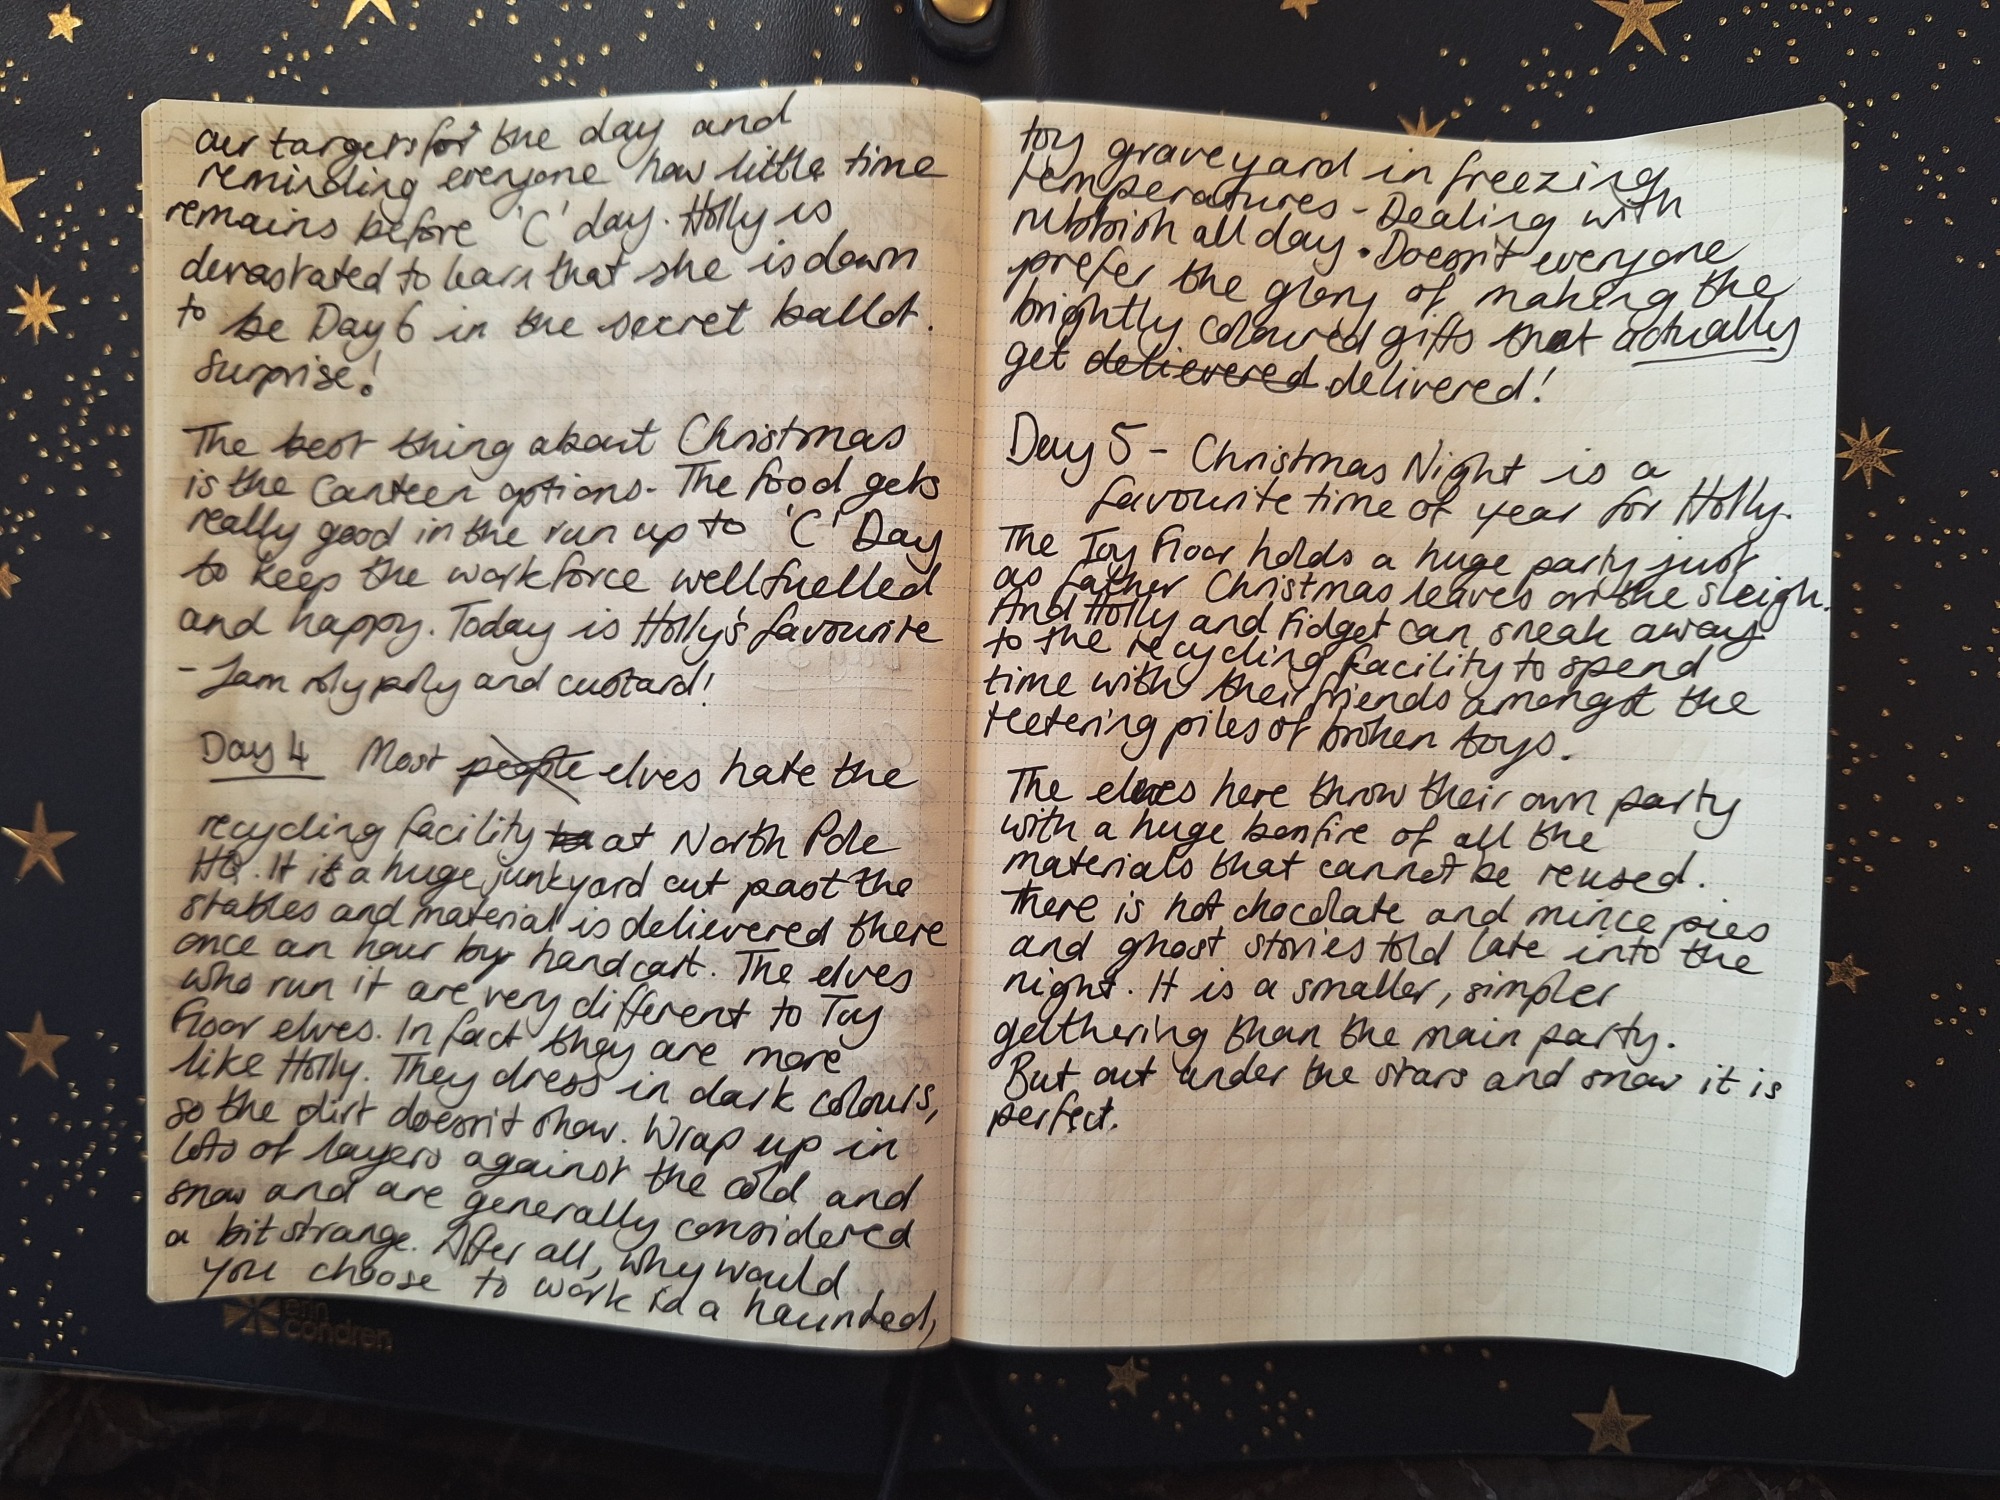 our targets for the day and
reminding everyone how little time
remains before 'C' day. Holly is
devastated to learn that she is down
to be Day 6 in the secret ballot.
surprise!
The best thing about Christmas
is the canteen options. The food gets
really good in the run up to 'C' Day
to keep the workforce well fuelled
and happy. Today is Holly's favourite
- Jam roly poly and custard!
Day 4 Most people elves hate the
recycling facility to at North Pole
HQ. It is a huge junkyard out past the
stables and material is delievered there
once an hour by handcart. The elves
who run it are very different to Toy
Floor elves. In fact they are more
like Holly. They dress in dark colours,
so the dirt doesn't show. Wrap up in
lots of layers against the cold and
snow and are generally considered
a bit strange. After all, why would
you choose to work in a haunted,
erin
condren
toy graveyard in freezing
temperatures - Dealing with
rubbish all day. Doesn't everyone
prefer the glory of making the
brightly coloured gifts that actually
get delievered delivered!
Day 5 - Christmas Night is a
favourite time of year for Holly.
The Toy Floor holds a huge party just
as Father Christmas leaves on the sleigh.
And Holly and Fidget can sneak away
to the recycling facility to spend
time with their friends amongst the
teetering piles of broken toys.
The elves here throw their own party
with a huge bonfire of all the
materials that cannot be reused.
There is hot chocolate and mince pies
and ghost stories told late into the
night. It is a smaller, simpler
gathering than the main party.
But out under the stars and snow it is
perfect.